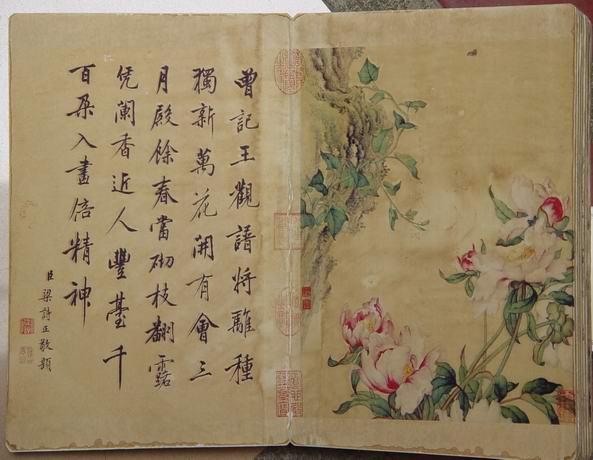 曾記王觀譜將離種
獨新萬花開有會三
月殿餘春當砌枝翻露
凭闌香近人豐臺千
百朵入畫倍精神
臣梁詩正敬題